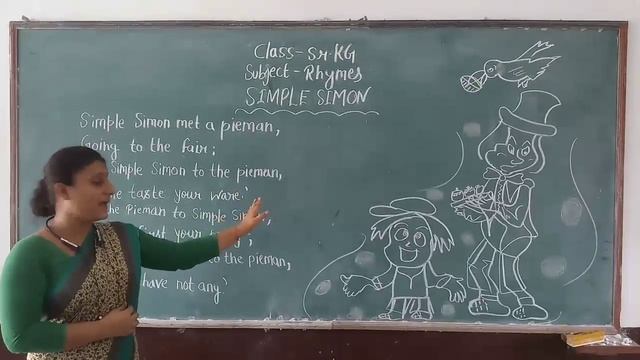 Class-Sr.KG
Subject-Rhymes
SIMPLE SIMON
Simple Simon met a pieman,
Going to the fair;
Simple Simon to the pieman,
taste your ware.'
the Pieman to Simple
first your
to the pieman,
have not any'